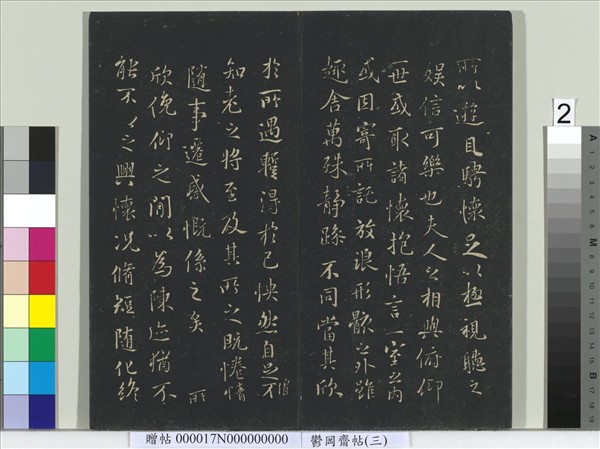 所以遊目騁懷足以極視聽之
娛信可樂也夫人之相與俯仰
一世或取諸懷抱悟言一室之內
或因寄所託放浪形骸之外雖
趣舍萬殊靜躁不同當其欣
於所遇蹔得於己快然自足不
僧
知老之將至及其所之既惓情
隨事遷感慨係之矣 所
欣俛仰之閒以為陳迹猶不
能不以之興懷況脩短隨化終
贈帖 000017N000000000 鬱岡齋帖(三)
2